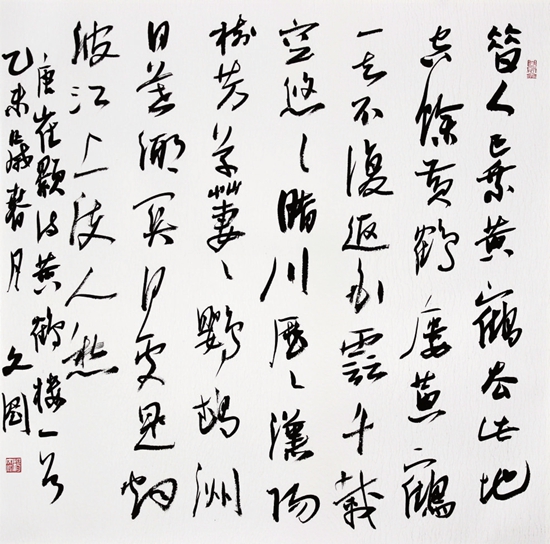 昔人已乘黄鶴去此地
空餘黄鶴樓黄鶴
一去不復返白雲千載
空悠〻晴川歷〻漢陽
樹芳草萋〻鸚鵡洲
日暮鄉關何處是烟
波江上使人愁
唐崔顥詩黄鶴樓一首
乙未歲春月 文